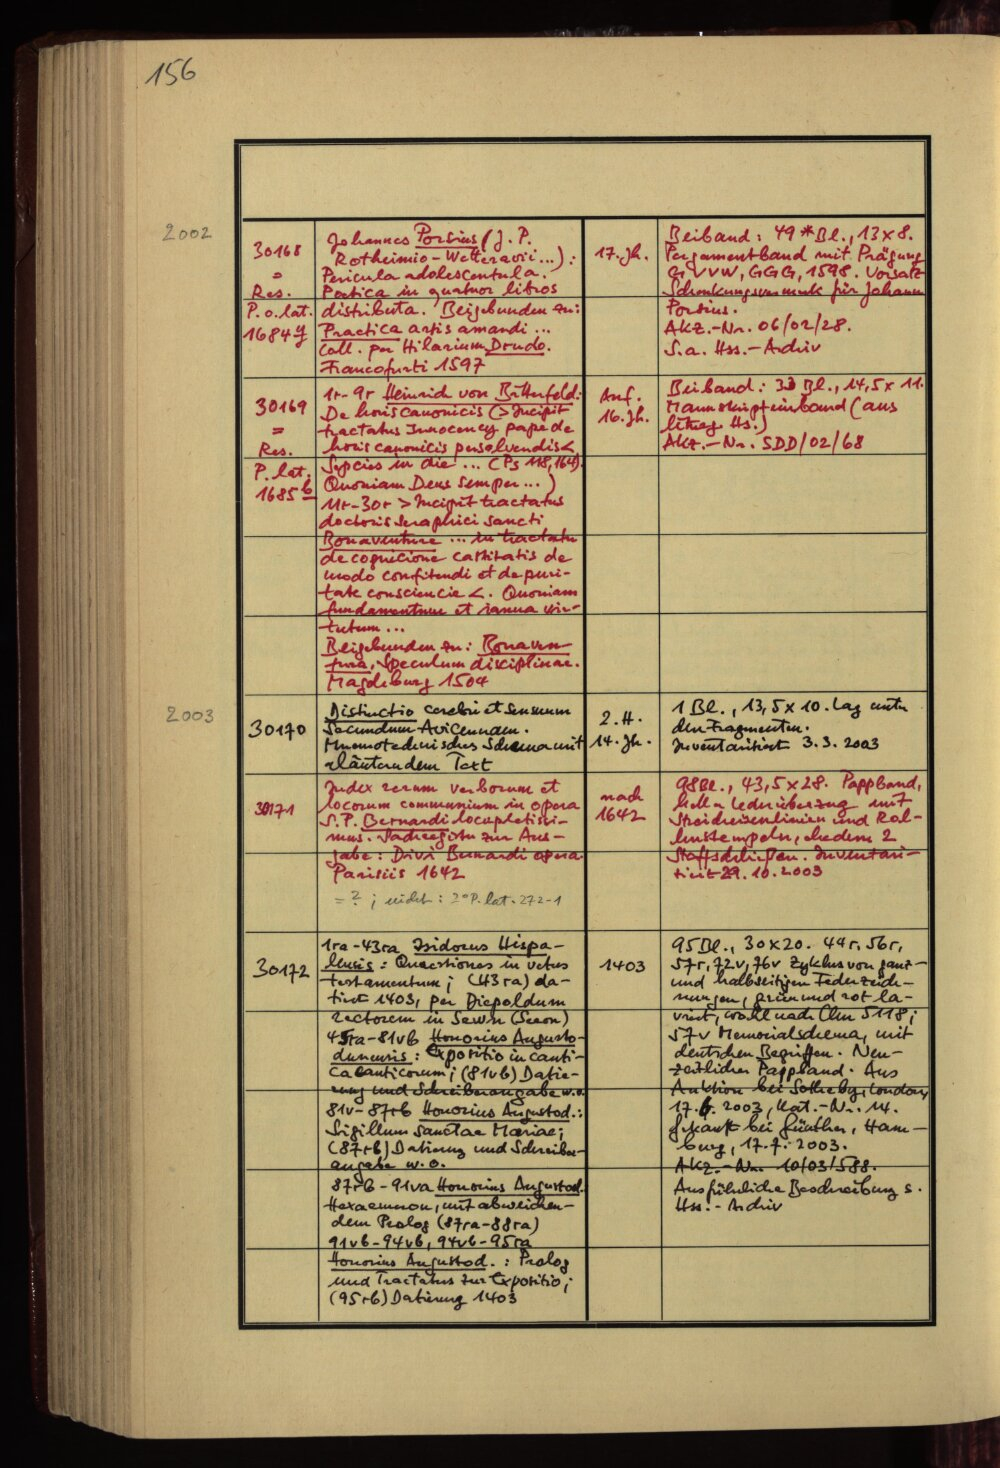 156
2002
30168
=
Res.
P.o.lat.
1684 g
Johannes Porsius (J. P.
Rotheimio-Wetteravii...):
Pericula adolescentula.
Poetica in quatuor libros
distributa. Beigebunden zu:
Practica artis amandi ...
Coll. per Hilarium Drudo.
Francofurti 1597
17. Jh.
Beiband: 49 * Bl., 13 x 8.
Pergamentband mit Prägung
VVW, GGG, 1598. Vorsatz
Schenkungsvermerk für Johann
Porsius.
Akz.-Nr. 06/02/28.
S.a. Hss.-Archiv
30169
=
Res.
P. lat.
1685 b
1r-9r Heinrich von Bitterfeld:
De horis canonicis (> Incipit
tractatus Innocency pape de
horis canonicis persolvendis <
Sepcies in die ... (Ps 118,164).
Quoniam Deus semper ...)
11r-30r > Incipit tractatus
doctoris seraphici sancti
Bonaventure ... in tractatu
de cognicione castitatis de
modo confitendi et de puri-
tate consciencie <. Quoniam
fundamentum et ianua vir-
tutum ...
Beigebunden zu: Bonaven-
tura, Speculum disciplinae.
Magdeburg 1504
Anf.
16. Jh.
Beiband: 33 Bl., 14,5 x 11.
Manuskripteinband (aus
liturg. Hs.)
Akz.-Nr. SDD/02/68
2003
30170
Distinctio cerebri et sensuum
secundum Avicennam.
Mnemotechnisches Schema mit
erläuterndem Text
2. H.
14. Jh.
1 Bl., 13,5 x 10. Lag unter
den Fragmenten.
Inventarisiert 3.3.2003
30171
Index rerum verborum et
locorum communium in opera
S. P. Bernardi locupletissi-
mus. Sachregister zur Aus-
gabe: Divi Bernardi opera
Parisiis 1642
= ? ; nicht: 2° P. lat. 272-1
nach
1642
98 Bl., 43,5 x 28. Pappband,
heller Lederüberzug mit
Streicheisenlinien und Rol-
lenstempeln, ehedem 2
Stoffschließen. Inventari-
siert 29.10.2003
30172
1ra-43ra Isidorus Hispa-
lensis: Quaestiones in vetus
testamentum; (43ra) da-
tiert 1403, per Diepoldum
rectorem in Sewn (Seeon)
45ra-81vb Honorius Augusto-
dunensis: Expositio in canti-
ca canticorum; (81vb) Datie-
rung und Schreiberangabe w.o.
81v-87rb Honorius Augustod.:
Sigillum sanctae Mariae;
(87rb) Datierung und Schreiber-
angabe w.o.
87rb-91va Honorius Augustod.
Hexaemeron, mit abweichen-
dem Prolog (87ra-88ra)
91vb-94vb, 94vb-95ra
Honorius Augustod.: Prolog
und Tractatus zur Expositio;
(95rb) Datierung 1403
1403
95 Bl., 30 x 20. 44r, 56r,
57r, 72v, 76v Zyklus von ganz-
und halbseitigen Federzeich-
nungen, grün und rot la-
viert, wohl nach Clm 5118;
57v Memorialschema, mit
deutschen Begriffen. Neu-
zeitlicher Pappband. Aus
Auktion bei Sotheby, London,
17.6.2003, Kat.-Nr. 14.
Gekauft bei Günther, Ham-
burg, 17.7.2003.
Akz.-Nr. 10/03/588.
Ausführliche Beschreibung s.
Hss.-Archiv